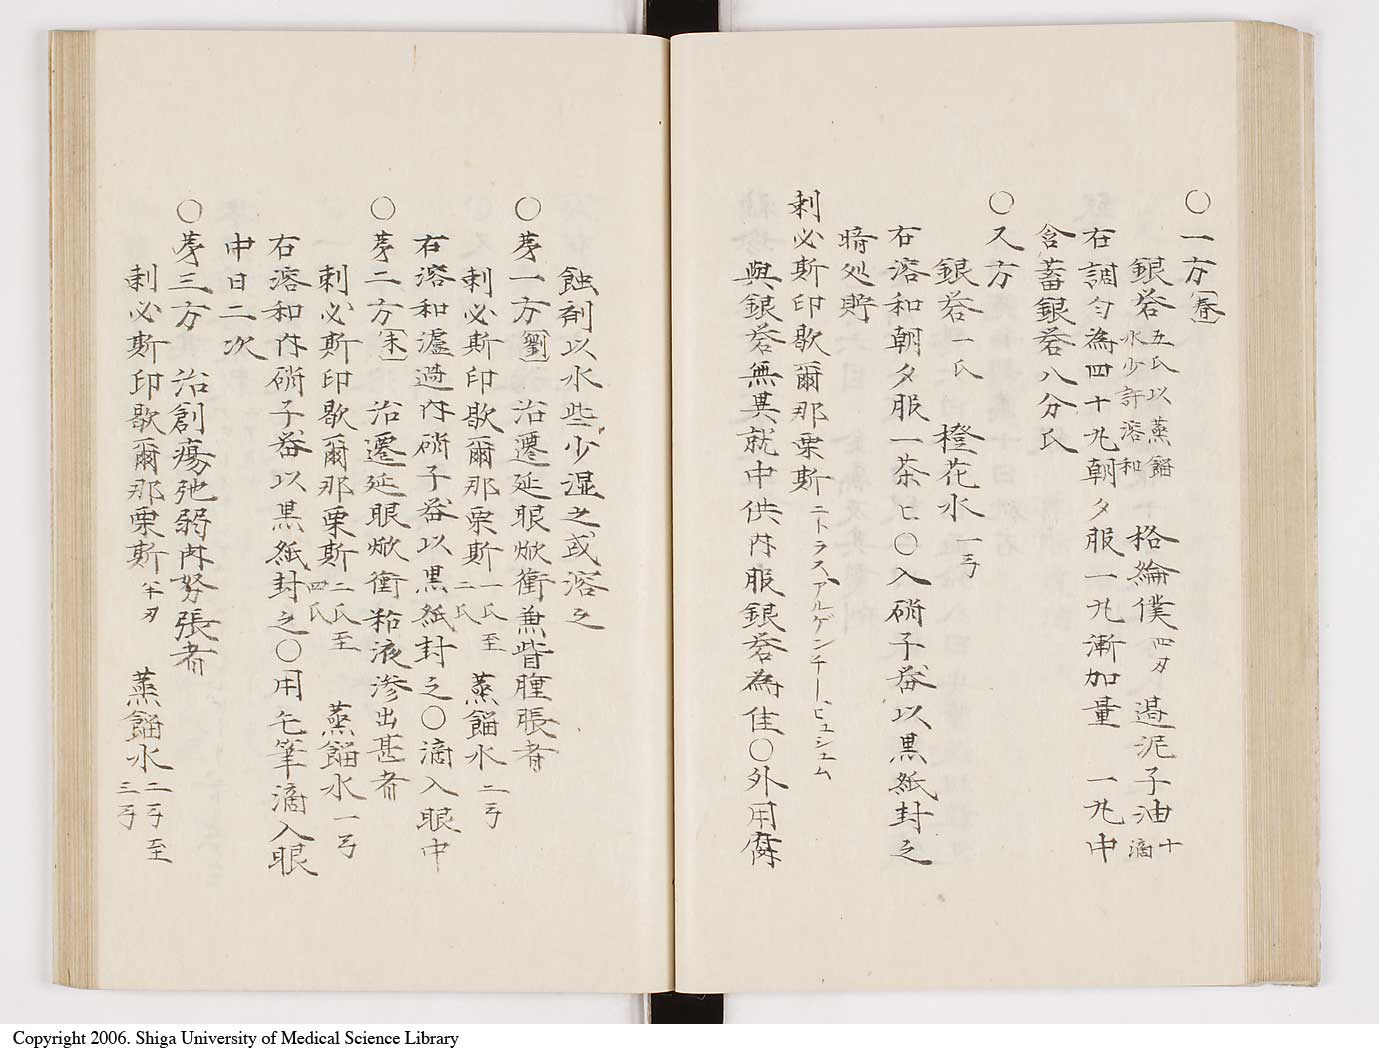 ○一方〔春〕
銀荅五氏以蒸餾水少許溶和 格綸僕四刄 過泥子油十滴
右調勻為四十九朝夕服一丸漸加量 一丸中
含蓄銀荅八分氏
○又方
銀荅一氏 橙花水一丐
右溶和朝夕服一茶匕○入硝子器以黒紙封之
暗処貯
剌必斯印歇爾那栗斯ニトラス、アルゲンチー、ヒュシュム
與銀荅無異就中供内服銀荅為佳○外用腐
蝕剤以水些少湿之或溶之
○第一方〔劉〕治遷延眼焮衝無眥腫脹者
剌必斯印歇爾那栗斯一氏至二氏 蒸餾水二丐
右溶和濾過内硝子器以黒紙封之○滴入眼中
○第二方〔朱〕治遷延眼焮衝粘液滲出甚者
剌必斯印歇爾那栗斯二氏至四氏 蒸餾水一丐
右溶和内硝子器以黒紙封之○用毛筆滴入眼
中日二次
○第三方 治創瘍弛弱内努張者
剌必斯印歇爾那栗斯半刄 蒸餾水二丐至三丐
Copyright 2006. Shiga University of Medical Science Library